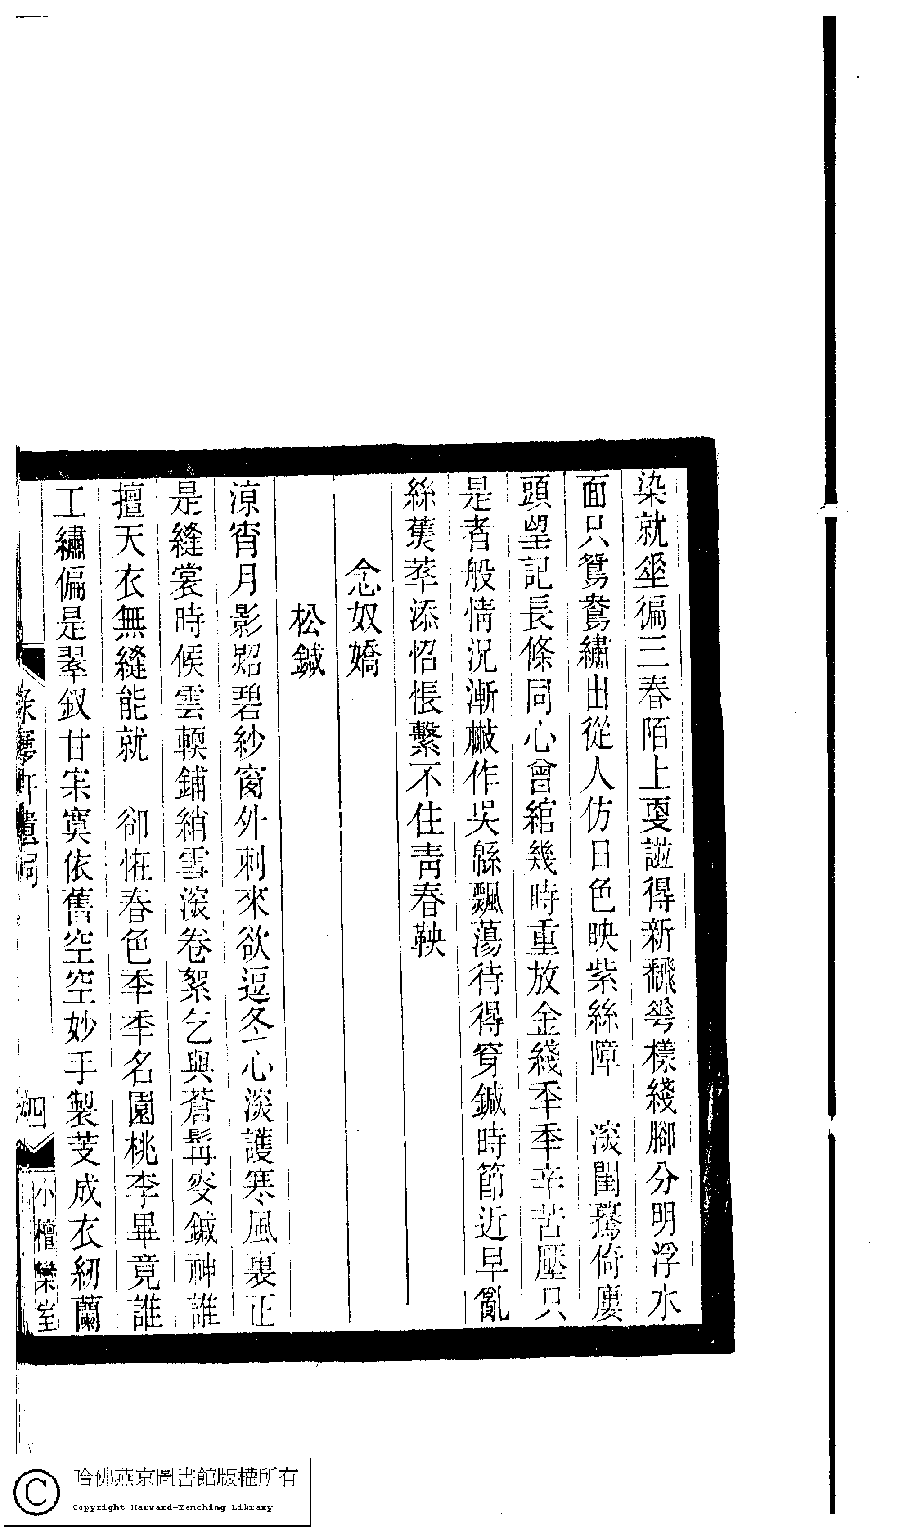 染就埀徧三春陌上更誇得新翻花樣綫腳分明浮水
面只鴛鴦繡出從人仿日色映紫絲障　深閨驀倚廔
頭望記長條同心曾綰幾時重放金綫秊秊辛苦壓只
是者般情況漸散作吳緜飄蕩待得穿鍼時節近早亂
絲蕉萃添怊悵繫不住青春鞅
念奴嬌
松鍼
涼宵月影照碧紗窗外刺來欲逗冬心淡護寒風裏正
是縫裳時候雲輭鋪綃雪滾卷絮乞與蒼髯叟鍼神誰
擅天衣無縫能就　卻恠春色秊秊名園桃李畢竟誰
工繡偏是翠釵甘宋寞依舊空空妙手製芰成衣紉蘭
軒遺詞
四
小檀欒室
哈佛燕京圖書館版權所有
Copyright Harvard-Yenching Library